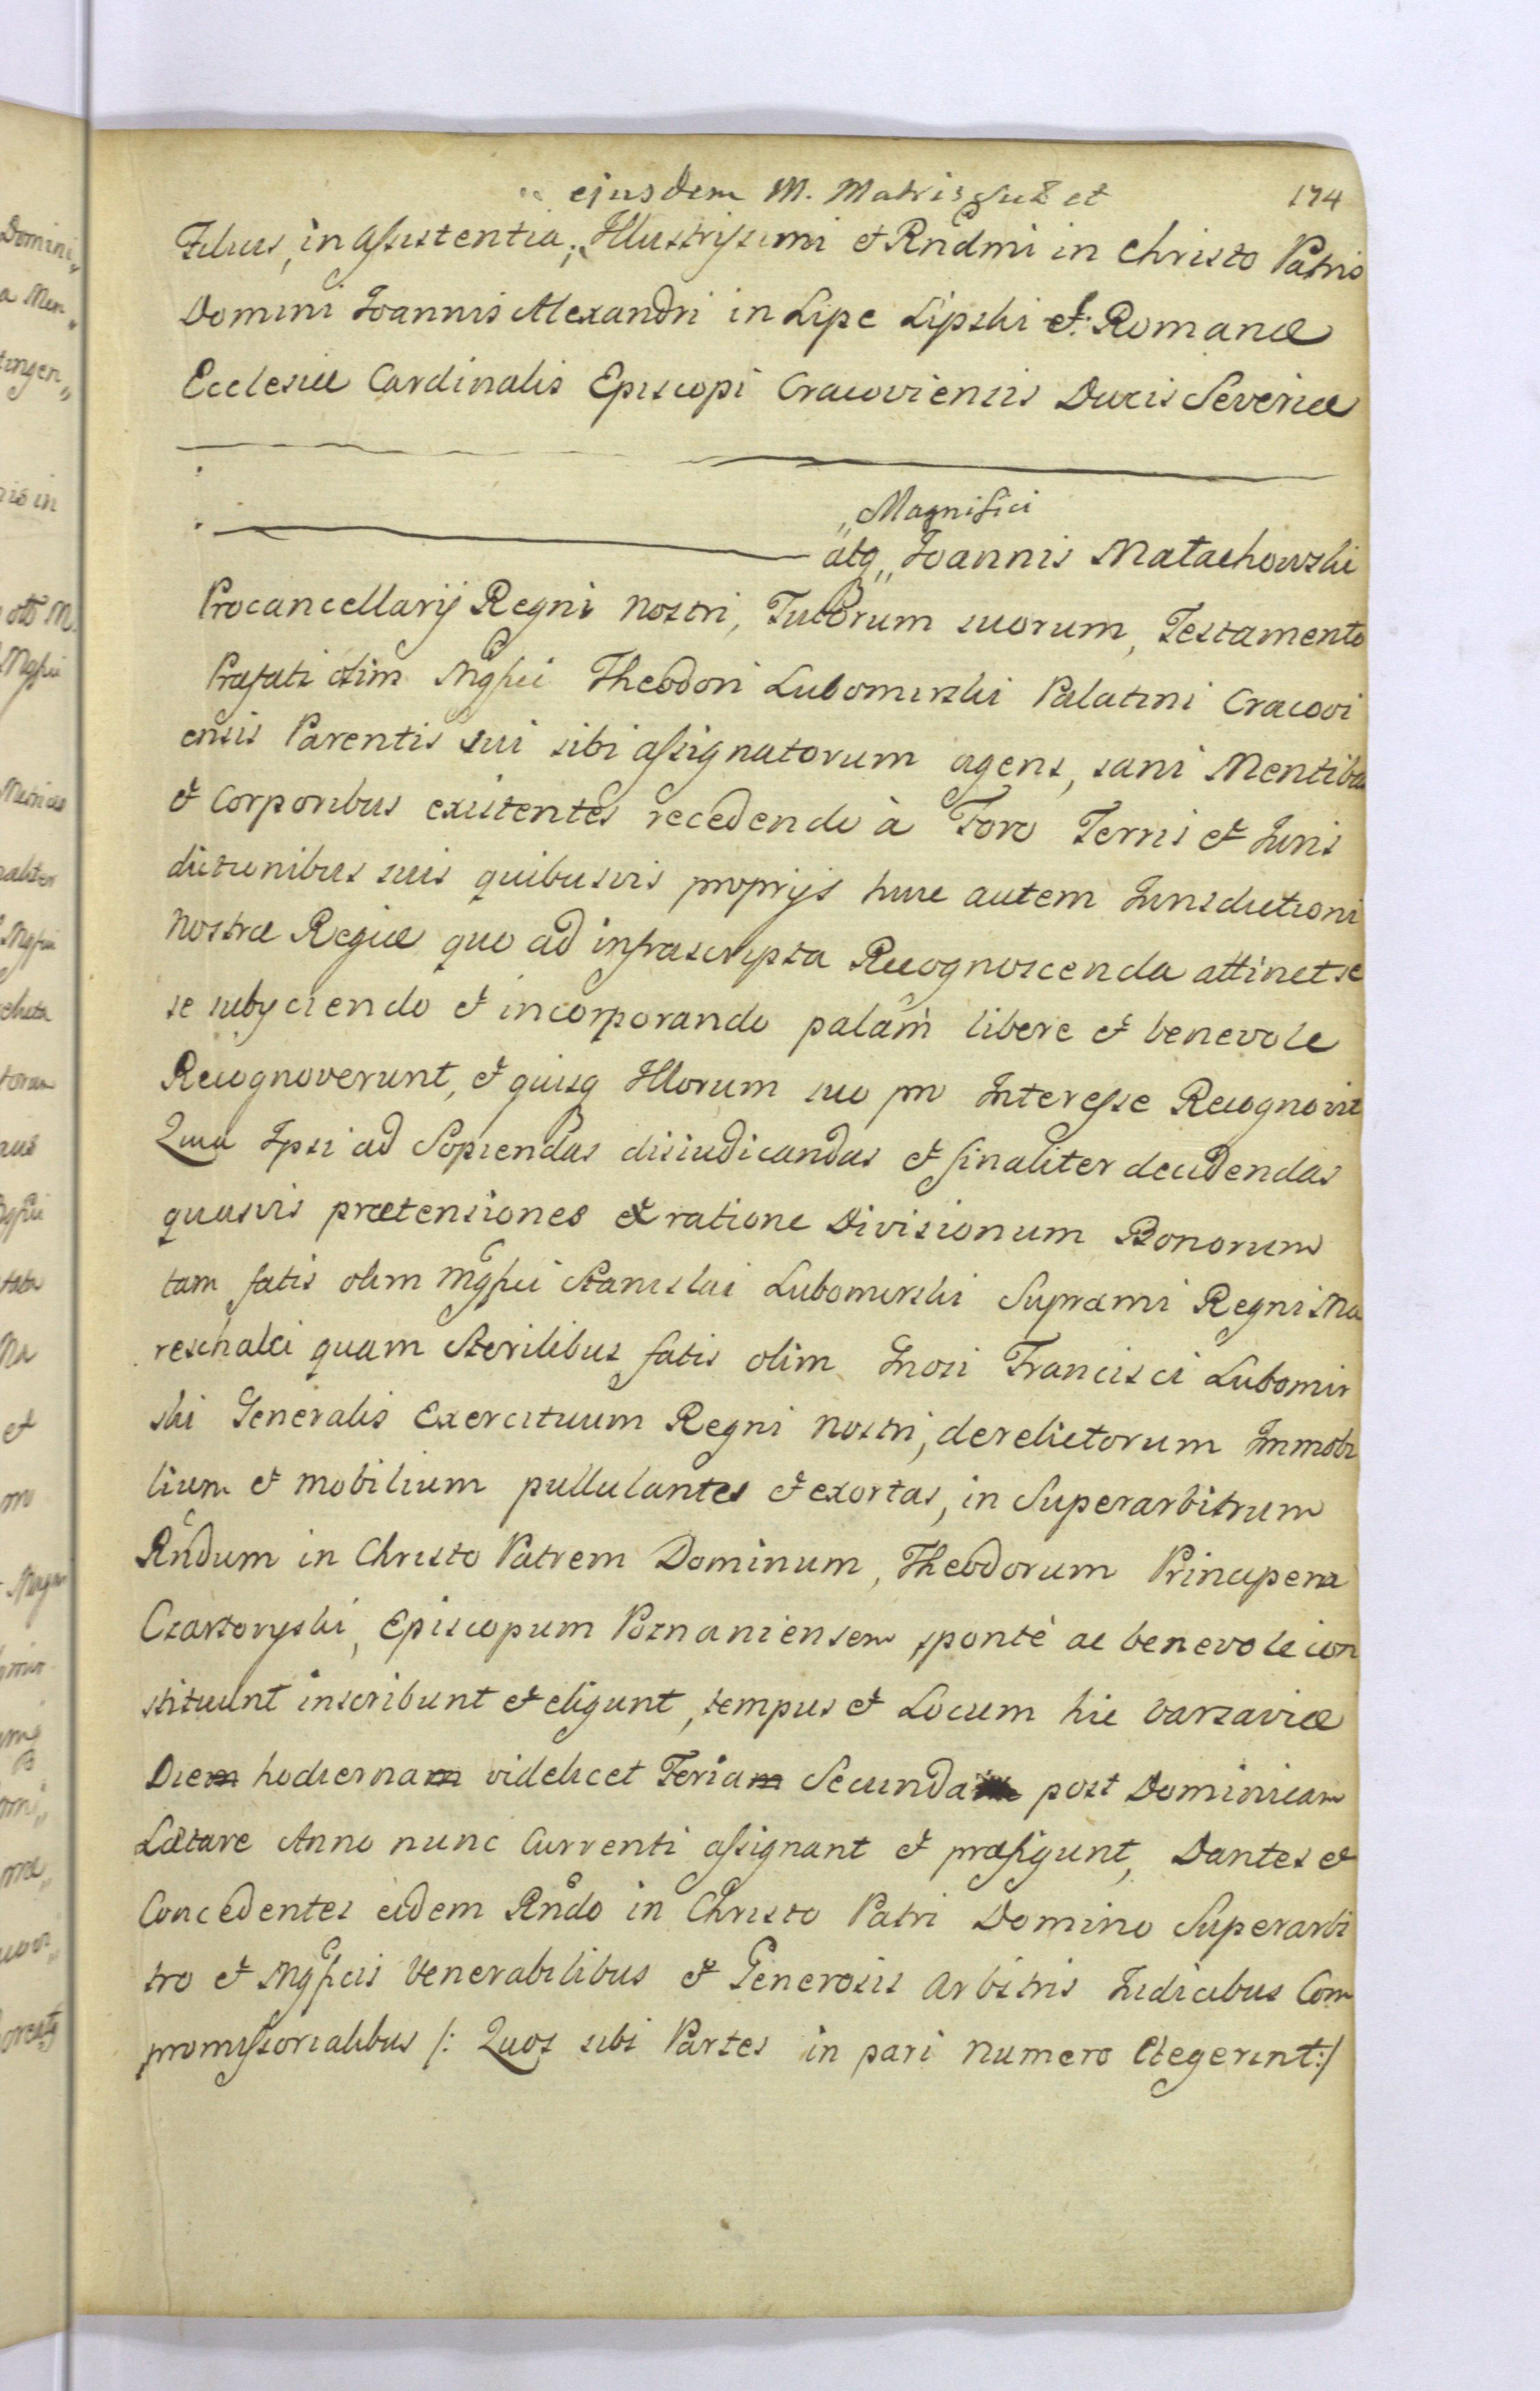 „ ejusdem M. Matris suæ et
174
Filius, in assistentia, Illustrissimi et Rndmi in Christo Patris
Domini Joannis Alexandri in Lipe Lipski et Romanæ
Ecclesiæ Cardinalis Episcopi Cracoviensis Ducis Severiæ
„Magnifici
atq„ Joannis Małachowski
Procancellarij Regni nostri, Tutorum suorum, Testamento
Præfati olim Mgfici Theodori Lubomirski Palatini Cracovi
ensis Parentis sui sibi assignatorum agens, sani Mentibus
et Corporibus existentes recedendo à Foro Terris et Juris
dictionibus suis quibusvis proprijs huic autem Jurisdictioni
Nostræ Regiæ quo ad infrascripta Recognoscenda attinet se
se subyciendo et incorporando palam libere et benevole
Recognoverunt, et quisq Illorum suo pro Interesse Recognovit
Quia Ipsi ad Sopiendas disiudicandas et finaliter decidendas
quasvis prætensiones ex ratione Divisionum Bonorum
tam fatis olim Mgfici Stanislai Lubomirski Supræmi Regni Ma
reschalci quam Sterilibus fatis olim Gnosi Francisci Lubomir
ski Generalis Exercituum Regni nostri, derelictorum Immobi
lium et mobilium pullulantes et exortas, in Superarbitrum
Rndum in Christo Patrem Dominum, Theodorum Principem
Czartoryski, Episcopum Poznaniensem sponte ac benevole con
stituunt inscribunt et eligunt, tempus et Locum hic Varsaviæ
Diem hodiernam videlicet Feriam Secundam post Dominicam
Lætare Anno nunc Currenti assignant et præfigunt, Dantes et
Concedentes eidem Rndo in Christo Patri Domino Superarbi
tro et Mgficis Venerabilibus et Generosis Arbitris Judicibus Com
promissorialibus /: Quos sibi Partes in pari Numero Elegerint:/